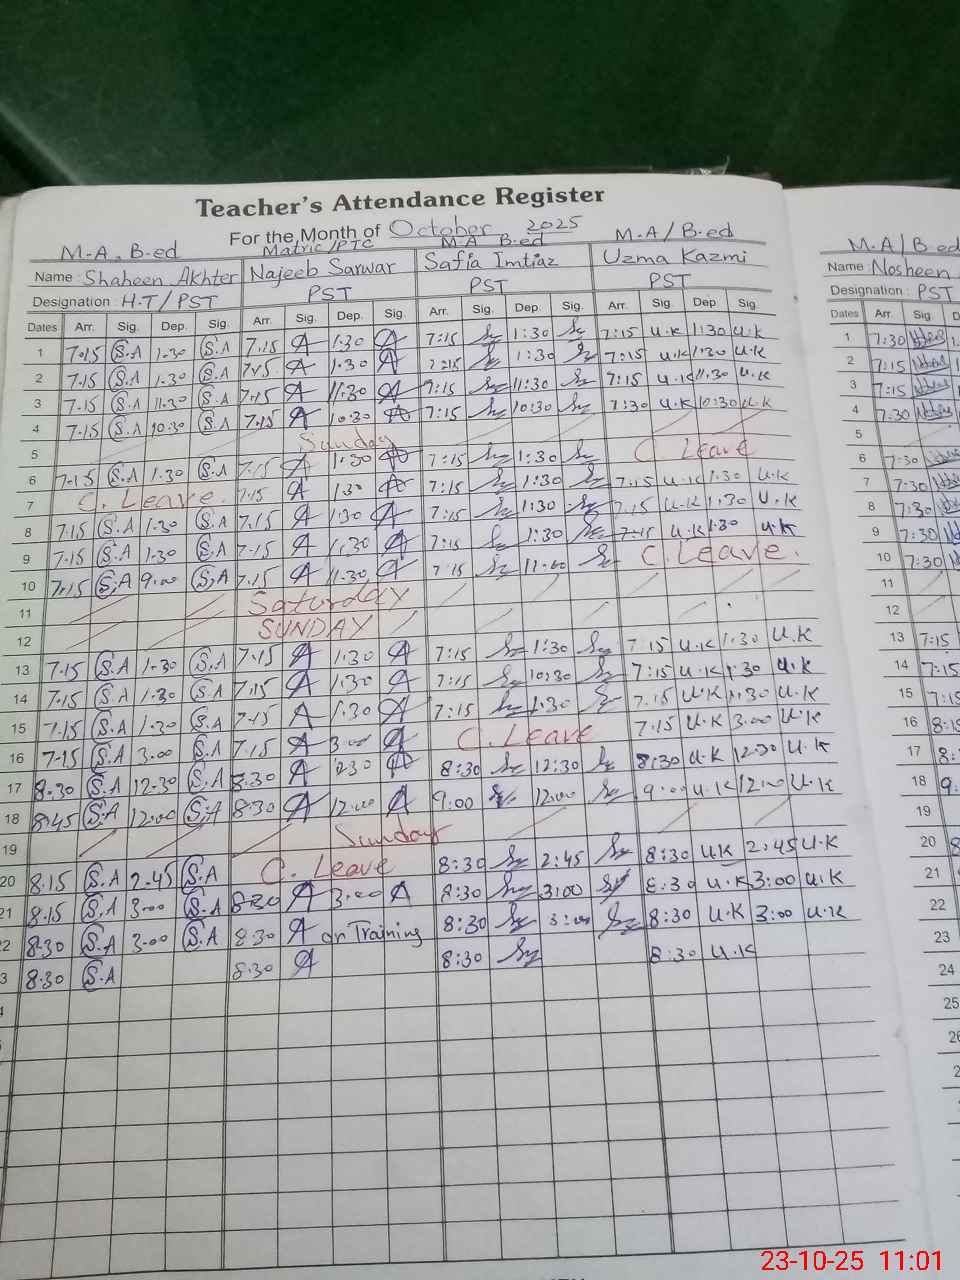 Teacher's Attendance Register
For the Month of October 2025
M.A, B.ed Matric/PTC M A B.ed M.A/B.ed M.A/B.ed
Name: Shaheen Akhter Najeeb Sarwar Safia Imtiaz Uzma Kazmi Name: Nosheen
Designation: H.T/PST PST PST PST Designation: PST
Dates Arr. Sig. Dep. Sig. Arr. Sig. Dep. Sig. Arr. Sig. Dep. Sig. Arr. Sig. Dep. Sig. Dates Arr. Sig. D
1 7.15 S.A 1.30 S.A 7.15 A 1.30 A 7:15 1:30 7:15 U.K 1:30 U.K 1 7:30
2 7.15 S.A 1.30 S.A 7.15 A 1.30 A 7:15 1:30 7:15 U.K 1.30 U.K 2 7:15
3 7.15 S.A 11.30 S.A 7.15 A 11.30 A 7:15 11:30 7:15 U.K 11.30 U.K 3 7:15
4 7.15 S.A 10.30 S.A 7.15 A 10.30 A 7:15 10:30 7:30 U.K 10:30 U.K 4 7:30
5 Sunday 5
6 7.15 S.A 1.30 S.A 7.15 A 1.30 A 7:15 1:30 C. Leave 6 7:30
7 C. Leave. 7.15 A 1.30 A 7:15 1:30 7.15 U.K 1.30 U.K 7 7:30
8 7.15 S.A 1.30 S.A 7.15 A 1.30 A 7:15 1:30 7.15 U.K 1.30 U.K 8 7:30
9 7.15 S.A 1.30 S.A 7.15 A 11.30 A 7:15 1:30 7.15 U.K 1.30 U.K 9 7:30
10 7.15 S.A 9.00 S.A 7.15 A 11.30 A 7:15 11.00 C. Leave. 10 7:30
11 Saturday 11
12 SUNDAY 12
13 7.15 S.A 1.30 S.A 7.15 A 1.30 A 7:15 1:30 7.15 U.K 1.30 U.K 13 7:15
14 7.15 S.A 1.30 S.A 7.15 A 1.30 A 7:15 10:30 7:15 U.K 1:30 U.K 14 7:15
15 7.15 S.A 1.30 S.A 7.15 A 1.30 A 7:15 1.30 7.15 U.K 1.30 U.K 15 7:15
16 7.15 S.A 3.00 S.A 7.15 A 3.00 A C. Leave 7.15 U.K 3.00 U.K 16
17 8.30 S.A 12.30 S.A 8.30 A A 8:30 12:30 8:30 U.K 12.30 U.K 17
18 8.45 S.A 12.00 S.A 8.30 A 12.00 A 9:00 12:00 9:00 U.K 12:00 U.K 18
19 Sunday 19
20 8.15 S.A 2.45 S.A C. Leave 8:30 2:45 8:30 U.K 2:45 U.K 20
21 8.15 S.A 3.00 S.A 8.30 A 3.00 A 8:30 3:00 8:30 U.K 3:00 U.K 21
2 8.30 S.A 3.00 S.A 8.30 A on Training 8:30 3:00 8:30 U.K 3:00 U.K 22
3 8.30 S.A 8.30 A 8:30 8:30 U.K 23
24
25
26
23-10-25 11:01